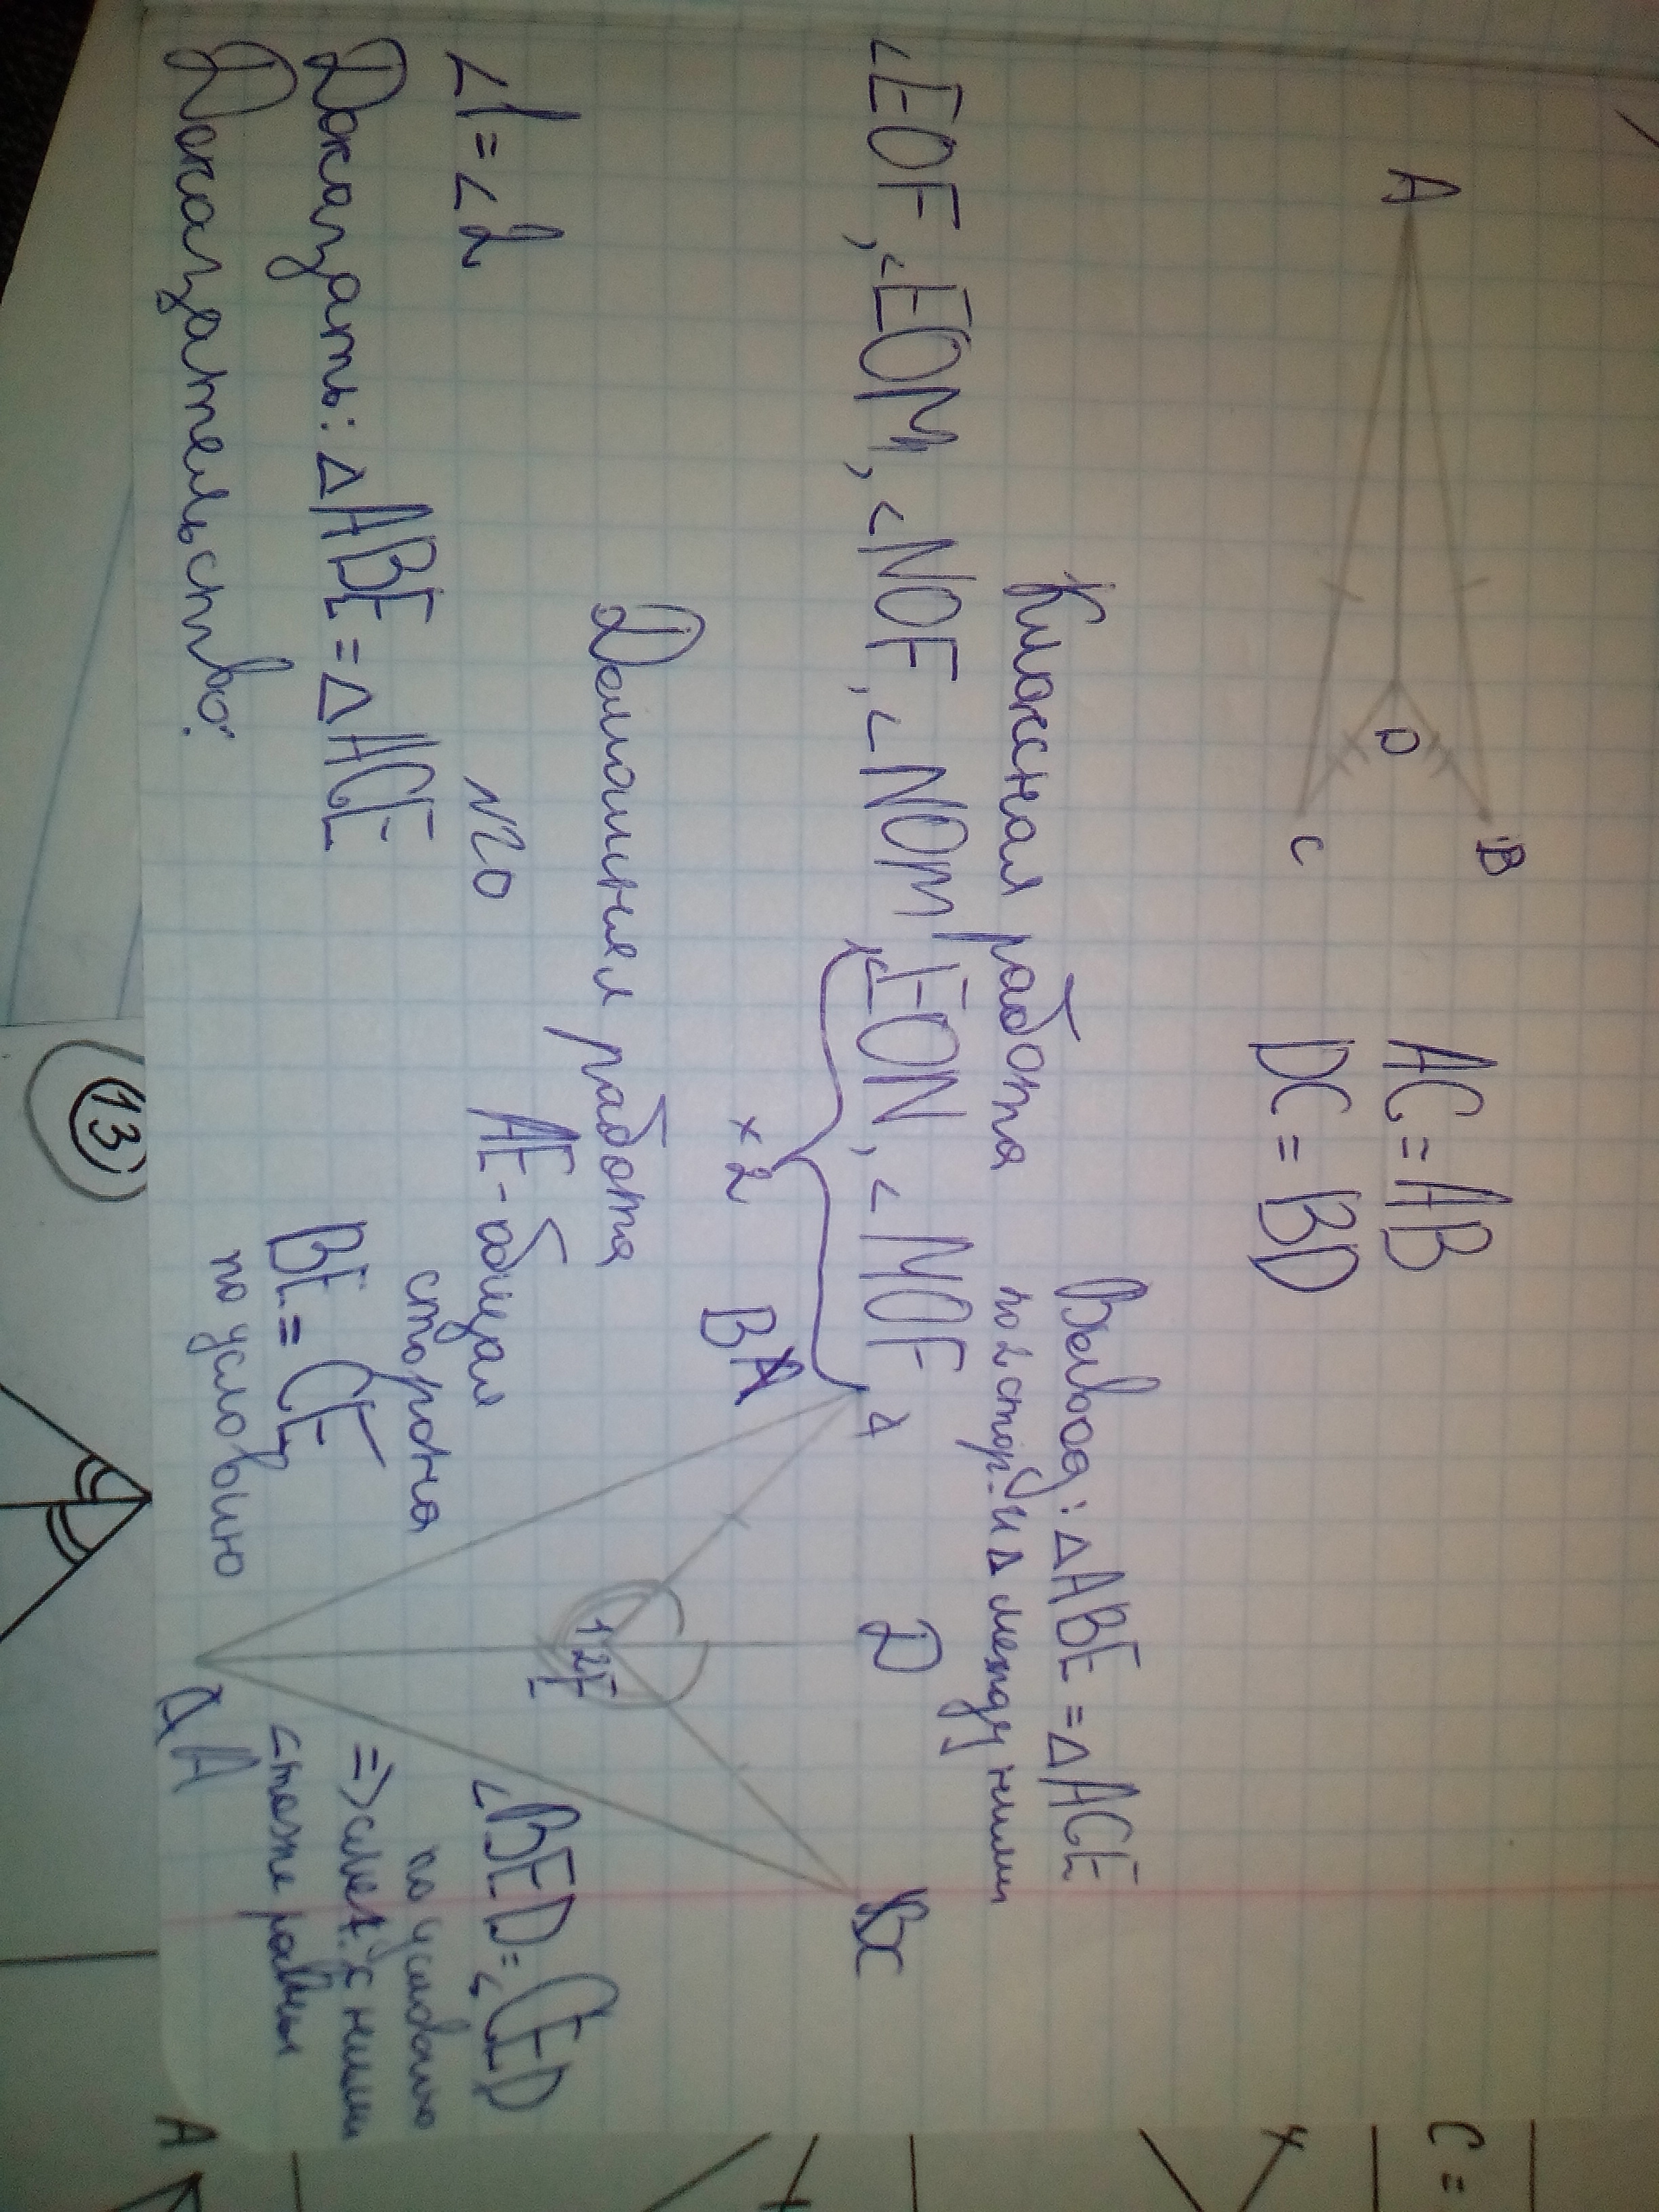 A
B
D
C
AC = AB
DC = BD
Классная работа
Вывод: △ABE = △ACE
по 2 стор. и △ между ними
<EOF, <EOM, <NOF, <NOM, <EON, <MOF
× 2
B
A
D
C
Домашняя работа
1 2 E
E
<1 = <2
№20
AE - общая
сторона
<BED = <CED
по условию
Доказать: △ABE = △ACE
BE = CE
по условию
=> смеж. с ними
< тоже равны
Доказательство:
A
13
C =
A